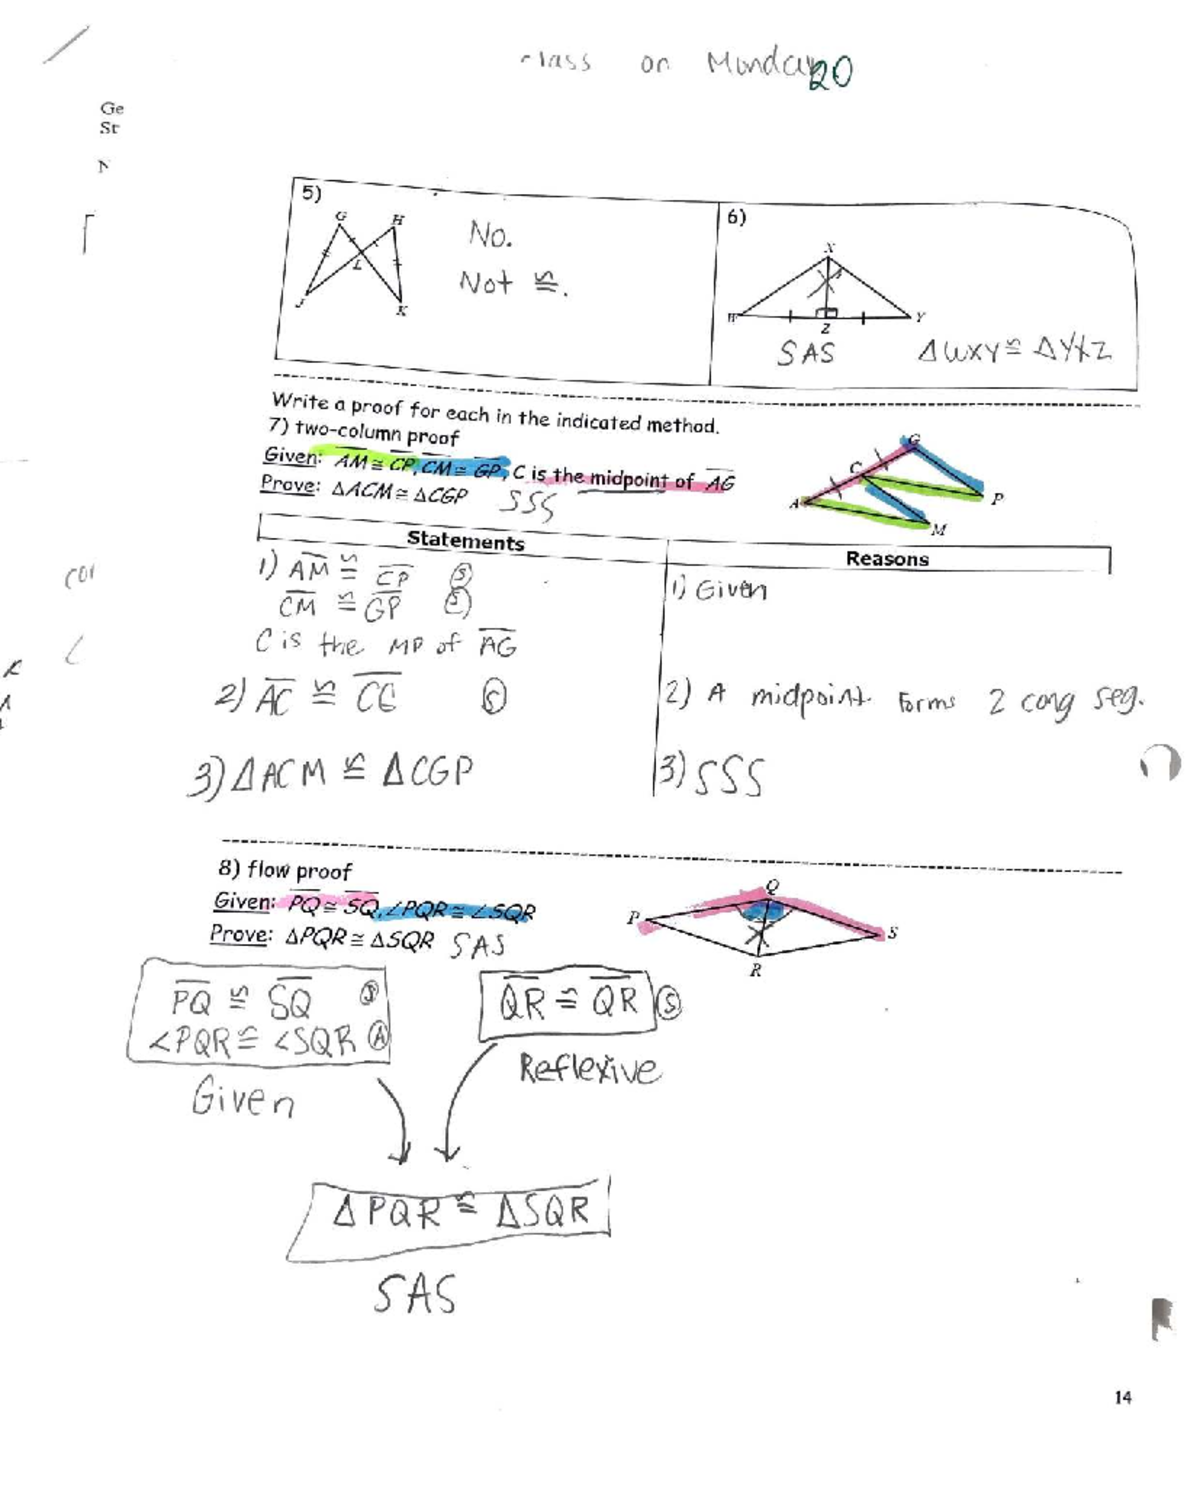 class on Monday 20
Ge
St
N
5)
G H
L
J K
No.
Not ≅.
6)
X
W Z Y
SAS
ΔWXY ≅ ΔYXZ
Write a proof for each in the indicated method.
7) two-column proof
Given: AM ≅ CP, CM ≅ GP, C is the midpoint of AG
Prove: ΔACM ≅ ΔCGP SSS
G
C
A P
M
Statements Reasons
1) AM ≅ CP Ⓢ
CM ≅ GP Ⓢ
C is the MP of AG
1) Given
2) AC ≅ CG Ⓢ
2) A midpoint forms 2 cong seg.
3) ΔACM ≅ ΔCGP
3) SSS
8) flow proof
Given: PQ ≅ SQ, ∠PQR ≅ ∠SQR
Prove: ΔPQR ≅ ΔSQR SAS
Q
P S
R
PQ ≅ SQ Ⓢ
∠PQR ≅ ∠SQR Ⓐ
Given
QR ≅ QR Ⓢ
Reflexive
ΔPQR ≅ ΔSQR
SAS
14